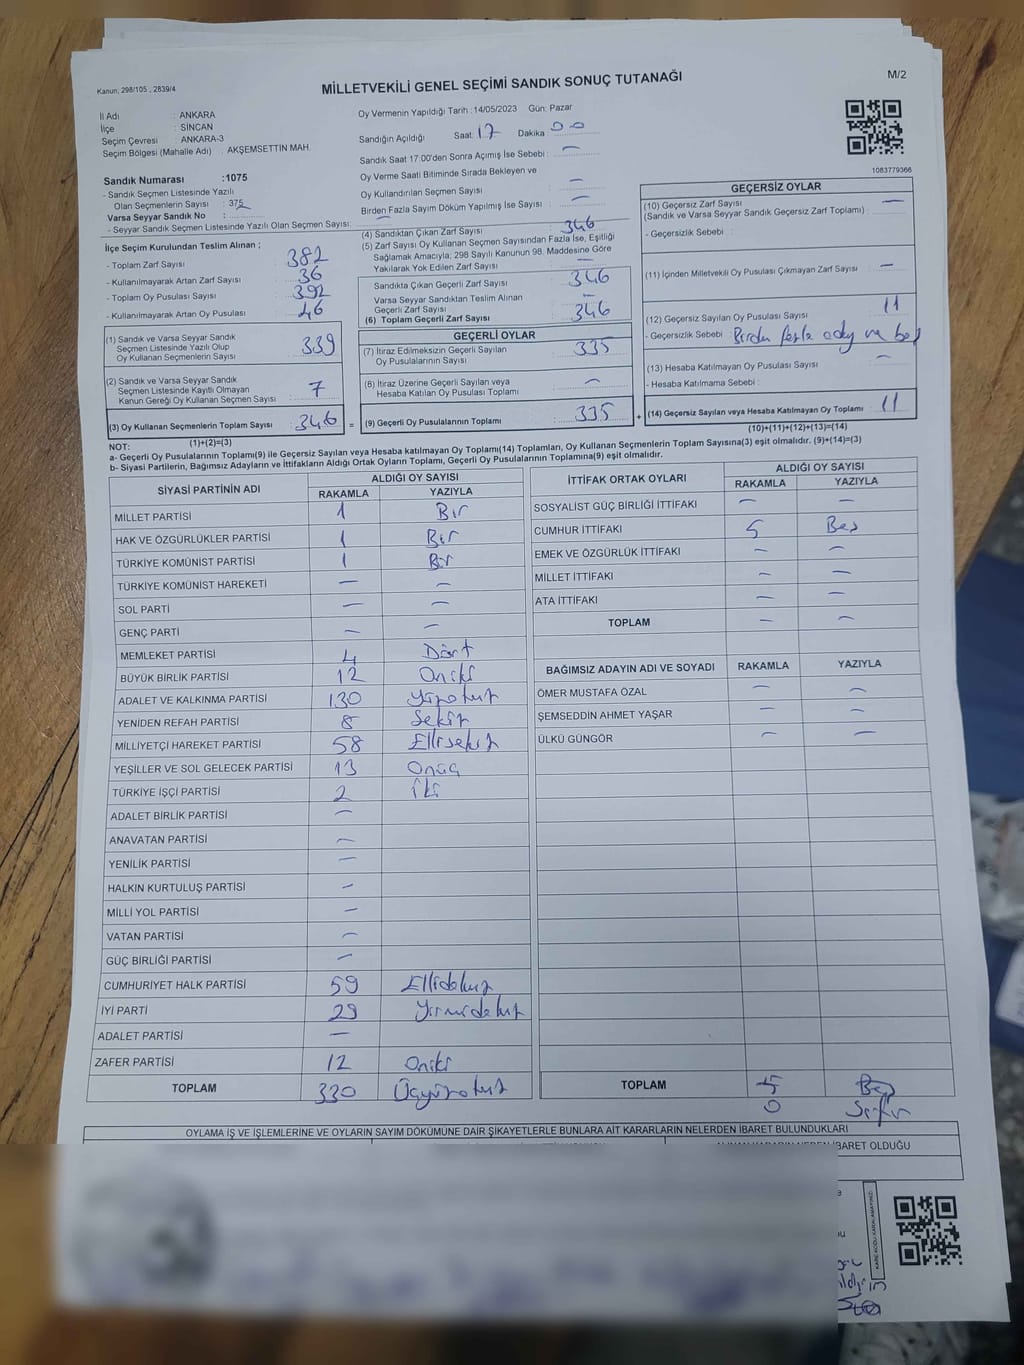 Kanun; 298/105 , 2839/4
MİLLETVEKİLİ GENEL SEÇİMİ SANDIK SONUÇ TUTANAĞI
M/2
İl Adı : ANKARA
İlçe : SİNCAN
Seçim Çevresi : ANKARA-3
Seçim Bölgesi (Mahalle Adı) : AKŞEMSETTİN MAH.
Oy Vermenin Yapıldığı Tarih : 14/05/2023 Gün: Pazar
Sandığın Açıldığı Saat: 17 Dakika 00
Sandık Saat 17:00'den Sonra Açılmış İse Sebebi : —
Oy Verme Saati Bitiminde Sırada Bekleyen ve
Oy Kullandırılan Seçmen Sayısı : —
Birden Fazla Sayım Döküm Yapılmış İse Sayısı : —
1083779366
Sandık Numarası :1075
- Sandık Seçmen Listesinde Yazılı
Olan Seçmenlerin Sayısı : 375
Varsa Seyyar Sandık No :
- Seyyar Sandık Seçmen Listesinde Yazılı Olan Seçmen Sayısı: —
İlçe Seçim Kurulundan Teslim Alınan ;
- Toplam Zarf Sayısı : 382
- Kullanılmayarak Artan Zarf Sayısı : 36
- Toplam Oy Pusulası Sayısı : 392
- Kullanılmayarak Artan Oy Pusulası : 46
(1) Sandık ve Varsa Seyyar Sandık
Seçmen Listesinde Yazılı Olup
Oy Kullanan Seçmenlerin Sayısı : 339
(2) Sandık ve Varsa Seyyar Sandık
Seçmen Listesinde Kayıtlı Olmayan
Kanun Gereği Oy Kullanan Seçmen Sayısı : 7
(3) Oy Kullanan Seçmenlerin Toplam Sayısı : 346 =
(1)+(2)=(3)
(4) Sandıktan Çıkan Zarf Sayısı : 346
(5) Zarf Sayısı Oy Kullanan Seçmen Sayısından Fazla İse, Eşitliği
Sağlamak Amacıyla; 298 Sayılı Kanunun 98. Maddesine Göre
Yakılarak Yok Edilen Zarf Sayısı : —
Sandıkta Çıkan Geçerli Zarf Sayısı : 346
Varsa Seyyar Sandıktan Teslim Alınan
Geçerli Zarf Sayısı : —
(6) Toplam Geçerli Zarf Sayısı : 346
GEÇERLİ OYLAR
(7) İtiraz Edilmeksizin Geçerli Sayılan
Oy Pusulalarının Sayısı : 335
(8) İtiraz Üzerine Geçerli Sayılan veya
Hesaba Katılan Oy Pusulası Toplamı : —
(9) Geçerli Oy Pusulalarının Toplamı : 335 +
GEÇERSİZ OYLAR
(10) Geçersiz Zarf Sayısı —
(Sandık ve Varsa Seyyar Sandık Geçersiz Zarf Toplamı) :
- Geçersizlik Sebebi :
(11) İçinden Milletvekili Oy Pusulası Çıkmayan Zarf Sayısı : —
(12) Geçersiz Sayılan Oy Pusulası Sayısı : 11
- Geçersizlik Sebebi : Birden fazla oday ve boş
(13) Hesaba Katılmayan Oy Pusulası Sayısı : —
- Hesaba Katılmama Sebebi :
(14) Geçersiz Sayılan veya Hesaba Katılmayan Oy Toplamı : 11
(10)+(11)+(12)+(13)=(14)
NOT:
a- Geçerli Oy Pusulalarının Toplamı(9) ile Geçersiz Sayılan veya Hesaba katılmayan Oy Toplamı(14) Toplamları, Oy Kullanan Seçmenlerin Toplam Sayısına(3) eşit olmalıdır. (9)+(14)=(3)
b- Siyasi Partilerin, Bağımsız Adayların ve İttifakların Aldığı Ortak Oyların Toplamı, Geçerli Oy Pusulalarının Toplamına(9) eşit olmalıdır.
SİYASİ PARTİNİN ADI ALDIĞI OY SAYISI
RAKAMLA YAZIYLA
MİLLET PARTİSİ 1 Bir
HAK VE ÖZGÜRLÜKLER PARTİSİ 1 Bir
TÜRKİYE KOMÜNİST PARTİSİ 1 Bir
TÜRKİYE KOMÜNİST HAREKETİ — —
SOL PARTİ — —
GENÇ PARTİ — —
MEMLEKET PARTİSİ 4 Dört
BÜYÜK BİRLİK PARTİSİ 12 Oniki
ADALET VE KALKINMA PARTİSİ 130 Yüzotuz
YENİDEN REFAH PARTİSİ 8 Sekiz
MİLLİYETÇİ HAREKET PARTİSİ 58 Ellisekiz
YEŞİLLER VE SOL GELECEK PARTİSİ 13 Onüç
TÜRKİYE İŞÇİ PARTİSİ 2 İki
ADALET BİRLİK PARTİSİ —
ANAVATAN PARTİSİ —
YENİLİK PARTİSİ —
HALKIN KURTULUŞ PARTİSİ —
MİLLİ YOL PARTİSİ —
VATAN PARTİSİ —
GÜÇ BİRLİĞİ PARTİSİ —
CUMHURİYET HALK PARTİSİ 59 Ellidokuz
İYİ PARTİ 29 Yirmidokuz
ADALET PARTİSİ —
ZAFER PARTİSİ 12 Oniki
TOPLAM 330 Üçyüzotuz
İTTİFAK ORTAK OYLARI ALDIĞI OY SAYISI
RAKAMLA YAZIYLA
SOSYALİST GÜÇ BİRLİĞİ İTTİFAKI — —
CUMHUR İTTİFAKI 5 Beş
EMEK VE ÖZGÜRLÜK İTTİFAKI — —
MİLLET İTTİFAKI — —
ATA İTTİFAKI — —
TOPLAM — —
BAĞIMSIZ ADAYIN ADI VE SOYADI RAKAMLA YAZIYLA
ÖMER MUSTAFA ÖZAL — —
ŞEMSEDDİN AHMET YAŞAR — —
ÜLKÜ GÜNGÖR — —
TOPLAM 5 Beş
0 Sıfır
OYLAMA İŞ VE İŞLEMLERİNE VE OYLARIN SAYIM DÖKÜMÜNE DAİR ŞİKAYETLERLE BUNLARA AİT KARARLARIN NELERDEN İBARET BULUNDUKLARI
İBARET OLDUĞU
KARE KODU KARALAMAYINIZ!